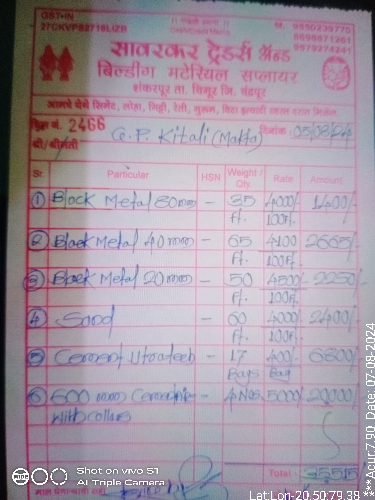 GST-IN
27CKVPS2718L1ZB
|| गणेशाय नमः ||
Cash/Credit Memo
सावरकर ट्रेडर्स अॅन्ड
बिल्डींग मटेरियल सप्लायर
शंकरपूर ता. चिमूर जि. चंद्रपूर
आमचे येथे सिमेंट, लोहा, गिट्टी, रेती, मुरूम, विटा इत्यादी
बिल नं. 2466 दिनांक : 05/08/24
श्री/श्रीमती G.P. Kitali (Makta)
Sr. Particular HSN Weight / Qty Rate Amount
1 Black Metal 60mm - 35 Ft. 4000/100Ft. 1400/-
2 Black Metal 40mm - 65 Ft. 4100/100Ft. 2665/-
3 Black Metal 20mm - 50 Ft. 4500/100Ft. 2250/-
4 Sand - 60 Ft. 4000/100Ft. 2400/-
5 Cement Utratech - 17 Bags 400/Bag 6800/-
6 600 mm Cement pipe - 4 Nos 5000/- 20000/-
With collars
Total 35515
Shot on vivo S1
AI Triple Camera
Lat:Lon-20.50:79.38
***Acur:7.90 Date: 07-08-2024